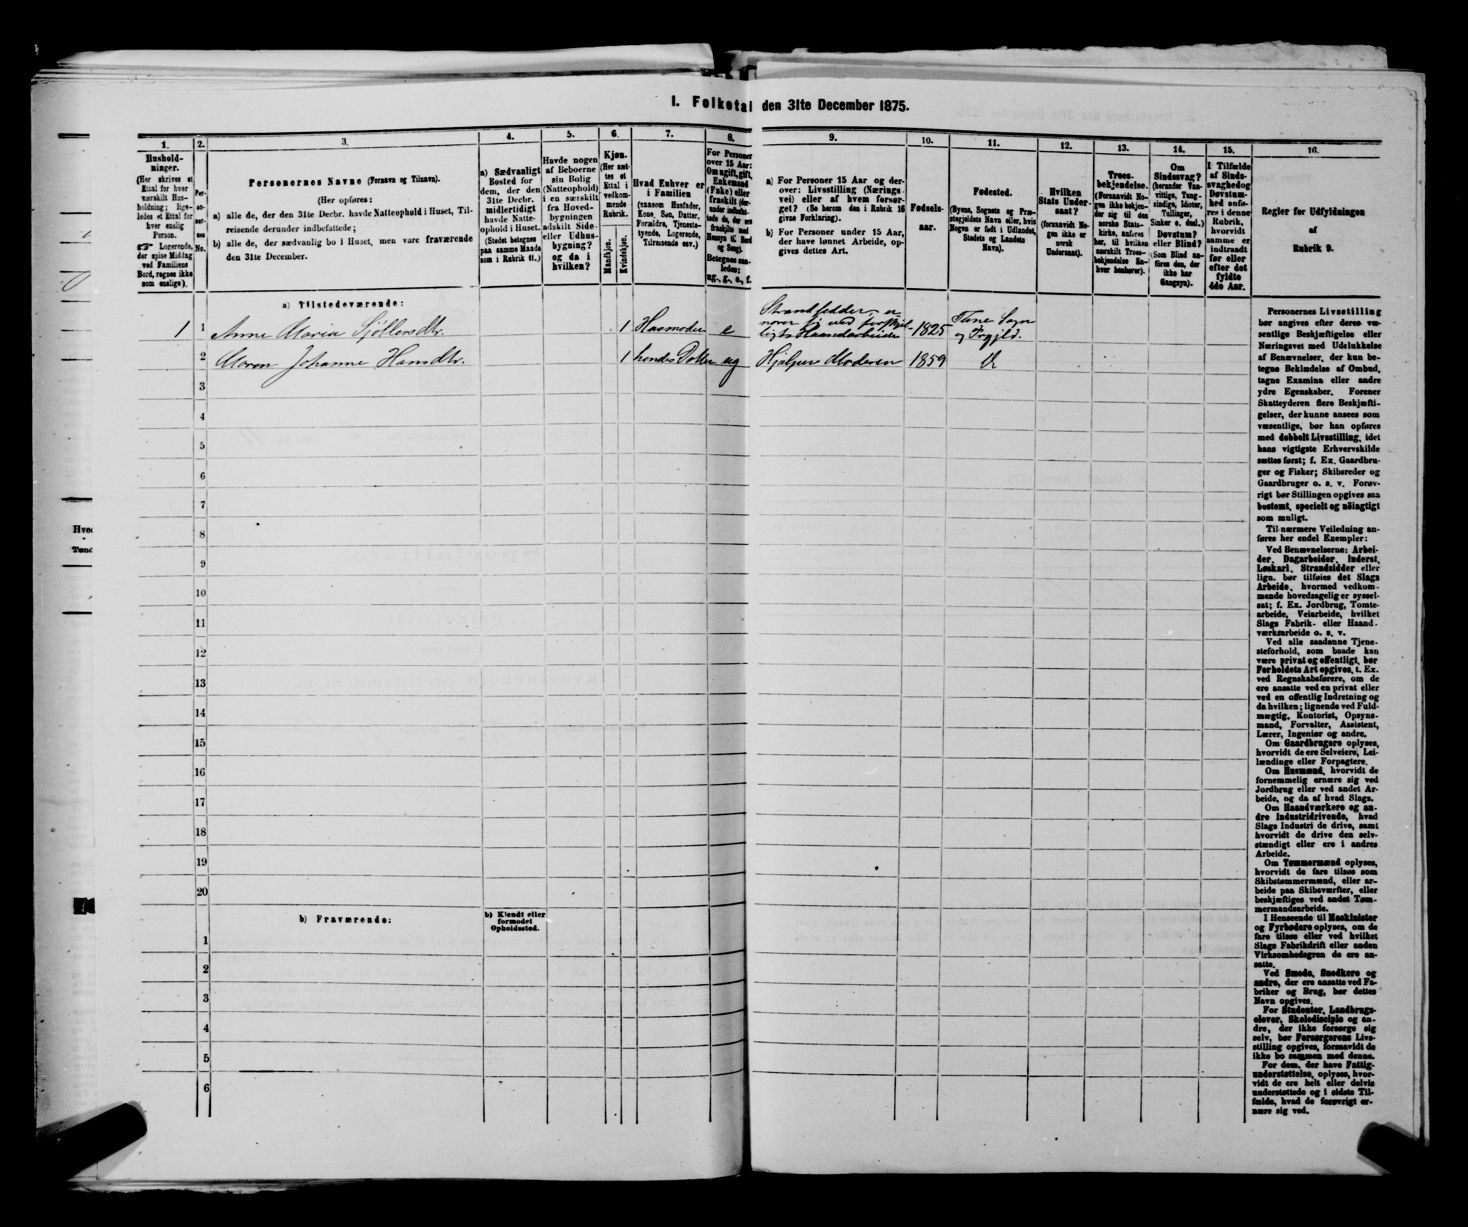 I. Folketal den 31te December 1875.
1. 2. 3. 4. 5. 6. 7. 8. 9. 10. 11. 12. 13. 14. 15. 16.
Hushold-
ninger.
(Her skrives et
Ettal for hver
særskilt Hus-
holdning; lige-
ledes et Ettal for
hver enslig
Person.
☞ Logerende,
der spise Middag
ved Familiens
Bord, regnes ikke
som enslige).
Per-
so-
ner-
nes
No.
Personernes Navne (Fornavn og Tilnavn).
(Her opføres:
a) alle de, der den 31te Decbr. havde Natteophold i Huset, Til-
reisende derunder indbefattede;
b) alle de, der sædvanlig bo i Huset, men vare fraværende
den 31te December.
a) Sædvanligt
Bosted for
dem, der den
31te Decbr.
midlertidigt
havde Natte-
ophold i Huset.
(Stedet betegnes
paa samme Maade
som i Rubrik 11.)
Havde nogen
af Beboerne
sin Bolig
(Natteophold)
i en særskilt
fra Hoved-
bygningen
adskilt Side-
eller Udhus-
bygning?
og da i
hvilken?
Kjøn.
(Her sæt-
tes et
Ettal i
vedkom-
mende
Rubrik.
Mandkjøn.
Kvindekjøn.
Hvad Enhver er
i Familien
(saasom Husfader,
Kone, Søn, Datter,
Forældre, Tjeneste-
tyende, Logerende,
Tilreisende osv.)
For Personer
over 15 Aar:
Om ugift, gift,
Enkemand
(Enke) eller
fraskilt
Betegnes saa-
ledes:
ug., g., e., f.
a) For Personer 15 Aar og der-
over: Livsstilling (Nærings-
vei) eller af hvem forsør-
get? (Se herom den i Rubrik 16
givne Forklaring).
b) For Personer under 15 Aar,
der have lønnet Arbeide, op-
gives dettes Art.
Fødsels-
aar.
Fødested.
(Byens, Sognets og Præ-
stegjældets Navn eller, hvis
Nogen er født i Udlandet,
Stedets og Landets
Navn).
Hvilken
Stats Under-
saat?
(forsaavidt No-
gen ikke er
norsk
Undersaat).
Troes-
bekjendelse.
(Forsaavidt No-
gen ikke bekjen-
der sig til den
norske Stats-
kirke, anføres
her, til hvilken
særskilt Troes-
bekjendelse En-
hver henhører).
Om
Sindssvag?
(herunder Van-
vittige, Tung-
sindige, Idioter,
Tullinger,
Sinker o. desl.)
Døvstum?
eller Blind?
(Som Blind an-
føres den, der
ikke har
Gangsyn).
I Tilfælde
af Sinds-
svaghed og
Døvstum-
hed anfø-
res i denne
Rubrik,
hvorvidt
samme er
indtraadt
før eller
efter det
fyldte
4de Aar.
Regler for Udfyldningen
af
Rubrik 9.
a) Tilstedeværende:
1 1 Anne Maria Sjøllersdtr. 1 Husmoder e 1825 Tune Sogn
og Prgjld.
2 Maren Johanne Hansdtr. 1 hendes Datter ug Hjælper Moderen 1859 U
3
4
5
6
7
8
9
10
11
12
13
14
15
16
17
18
19
20
b) Fraværende:
b) Kjendt eller
formodet
Opholdssted.
1
2
3
4
5
6
Personernes Livsstilling
bør angives efter deres væ-
sentlige Beskjæftigelse eller
Næringsvei med Udelukkelse
af Benævnelser, der kun be-
tegne Beklædelse af Ombud,
tagne Examina eller andre
ydre Egenskaber. Forener
Skatteyderen flere Beskjæfti-
gelser, der kunne ansees som
væsentlige, bør han opføres
med dobbelt Livsstilling, idet
hans vigtigste Erhvervskilde
sættes først; f. Ex. Gaardbru-
ger og Fisker; Skibsreder og
Gaardbruger o. s. v. Forøv-
rigt bør Stillingen opgives saa
bestemt, specielt og nøiagtigt
som muligt.
Til nærmere Veiledning an-
føres her endel Exempler:
Ved Benævnelserne: Arbei-
der, Dagarbeider, Inderst,
Løskarl, Strandsidder eller
lign. bør tilføies det Slags
Arbeide, hvormed vedkom-
mende hovedsagelig er syssel-
sat; f. Ex. Jordbrug, Tomte-
arbeide, Veiarbeide, hvilket
Slags Fabrik- eller Haand-
værksarbeide o. s. v.
Ved alle saadanne Tjene-
steforhold, som baade kan
være privat og offentligt, bør
Forholdets Art opgives, f. Ex.
ved Regnskabsførere, om de
ere ansatte ved en privat eller
ved en offentlig Indretning og
da hvilken; lignende ved Fuld-
mægtig, Kontorist, Opsyns-
mand, Forvalter, Assistent,
Lærer, Ingeniør og andre.
Om Gaardbrugere oplyses,
hvorvidt de ere Selveiere, Lei-
lændinge eller Forpagtere.
Om Husmænd, hvorvidt de
fornemmelig ernære sig ved
Jordbrug eller ved andet Ar-
beide, og da af hvad Slags.
Om Haandværkere og an-
dre Industridrivende, hvad
Slags Industri de drive, samt
hvorvidt de drive den selv-
stændigt eller ere i andres
Arbeide.
Om Tømmermænd oplyses,
hvorvidt de fare tilsøs som
Skibstømmermænd, eller ar-
beide paa Skibsværfter, eller
beskjæftiges ved andet Tøm-
mermandsarbeide.
I Henseende til Maskinister
og Fyrbødere oplyses, om de
fare tilsøs eller ved hvilket
Slags Fabrikdrift eller anden
Virksomhedsgren de ere an-
satte.
Ved Smede, Snedkere og
andre, der ere ansatte ved Fa-
briker og Brug, bør dettes
Navn opgives.
For Studenter, Landbrugs-
elever, Skoledisciple og an-
dre, der ikke forsørge sig
selv, bør Forsørgerens Livs-
stilling opgives, forsaavidt de
ikke bo sammen med denne.
For dem, der have Fattig-
understøttelse, oplyses, hvor-
vidt de ere helt eller delvis
understøttede og i sidste Til-
fælde, hvad de forøvrigt er-
nære sig ved.